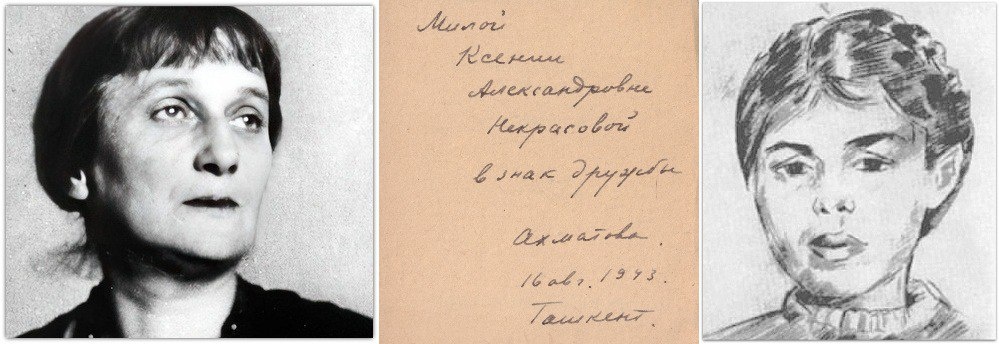 Милой
Ксении
Александровне
Некрасовой
в знак дружбы
Ахматова.
16 авг. 1943.
Ташкент.